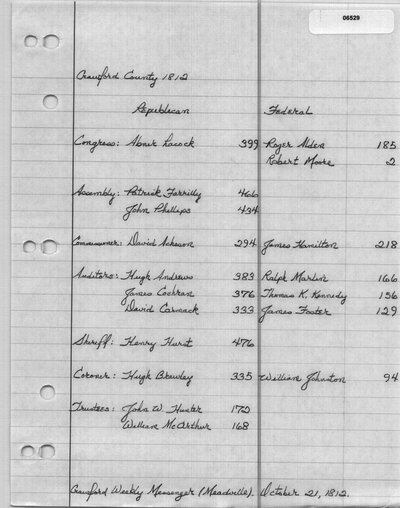 06529
Crawford County 1812
Republican Federal
Congress: Abner Lacock 399 Roger Alden 185
Robert Moore 2
Assembly: Patrick Farrilly 466
John Phillips 434
Commissioner: David Acheson 294 James Hamilton 218
Auditors: Hugh Andrews 383 Ralph Marlin 166
James Cochran 376 Thomas K. Kennedy 156
David Carmack 333 James Foster 129
Sheriff: Henry Hurst 476
Coroner: Hugh Brawley 335 William Johnston 94
Trustees: John W. Hunter 172
William McArthur 168
Crawford Weekly Messenger (Meadville). October 21, 1812.